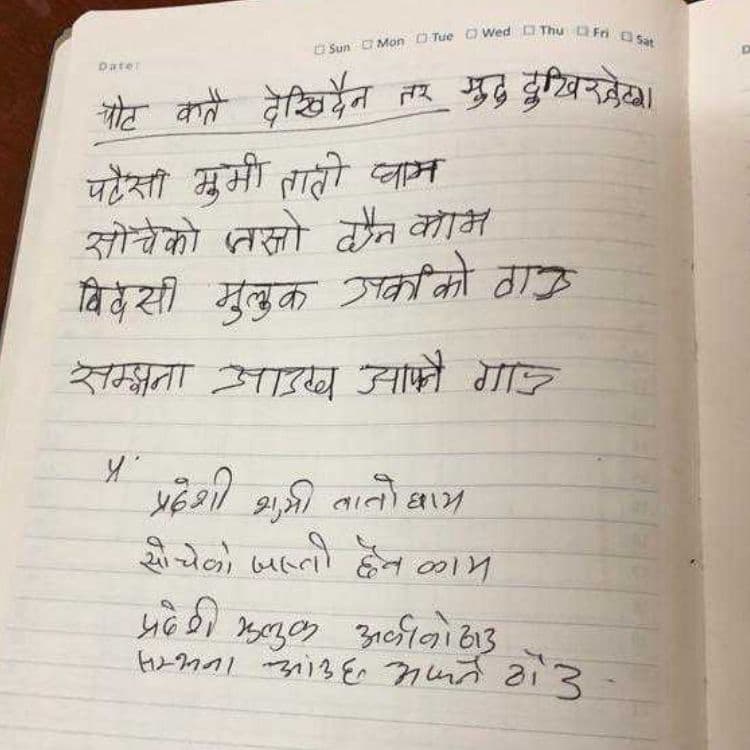 Date:
Sun Mon Tue Wed Thu Fri Sat
चौट कतै देखिदैन तर मुटु दुखिरहेछ।
पदैसी भुमी तातो घाम
सोचेको जस्तो छैन काम
बिदेसी मुलुक अर्काको ठाउ
सम्झना आउछ आफ्नै गाउ
प्र
प्रदेशी भुमी तातो घाम
सोचेको जस्तो छैन काम
प्रदेशी मुलुक अर्काको ठाउ
सम्झना आउछ आफ्नै गाँउ